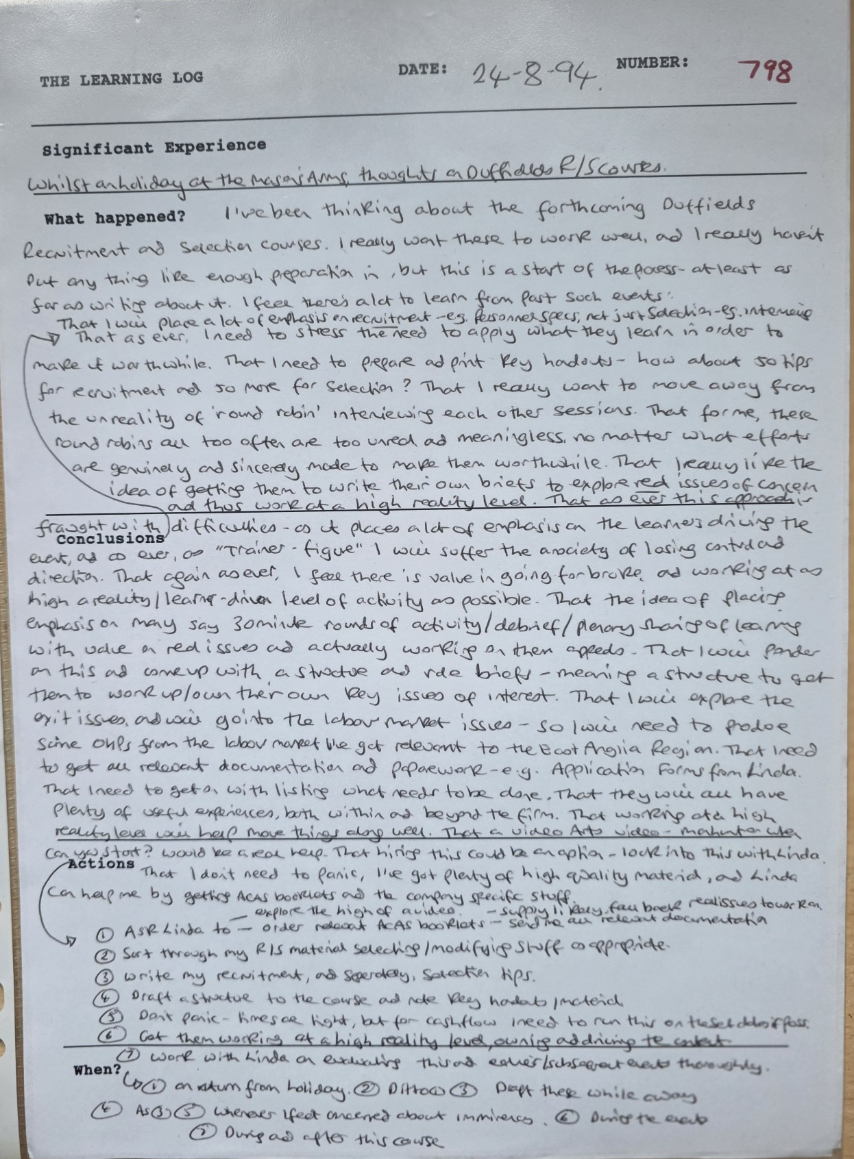 THE LEARNING LOG DATE: 24-8-94. NUMBER: 798
Significant Experience
Whilst on holiday at the Mason's Arms, thoughts on Duffields R/S Courses.
What happened? I've been thinking about the forthcoming Duffields
Recruitment and Selection courses. I really want these to work well, and I really haven't
put any thing like enough preparation in, but this is a start of the process - at least as
far as writing about it. I feel there's a lot to learn from past such events:
That I will place a lot of emphasis on recruitment - eg. Personnel specs, not just Selection - eg. interviewing
That as ever, I need to stress the need to apply what they learn in order to
make it worthwhile. That I need to prepare and print key handouts - how about 50 tips
for recruitment and 50 more for Selection? That I really want to move away from
the unreality of 'round robin' interviewing each other sessions. That for me, these
round robins all too often are too unreal and meaningless, no matter what efforts
are genuinely and sincerely made to make them worthwhile. That I really like the
idea of getting them to write their own briefs to explore real issues of concern
and thus work at a high reality level. That as ever this approach is
fraught with difficulties - as it places a lot of emphasis on the learners driving the
Conclusions
event, and as ever, as "Trainer-figure" I will suffer the anxiety of losing control and
direction. That again as ever, I feel there is value in going for broke, and working at as
high a reality/learner-driven level of activity as possible. That the idea of placing
emphasis on many say 30 minute rounds of activity/debrief/plenary sharing of learning
with value on real issues and actually working on them appeals. That I will ponder
on this and come up with a structure and role briefs - meaning a structure to get
them to work up/own their own key issues of interest. That I will explore the
exit issues, and will go into the labour market issues - so I will need to produce
some OHPs from the labour market I've got relevant to the East Anglia Region. That I need
to get all relevant documentation and paperwork - e.g. Application Forms from Linda.
That I need to get on with listing what needs to be done. That they will all have
plenty of useful experiences, both within and beyond the firm. That working at a high
reality level will help move things along well. That a Video Arts video - when
can you start? would be a real help. That hiring this could be an option - look into this with Linda.
Actions
That I don't need to panic, I've got plenty of high quality material, and Linda
can help me by getting ACAS booklets and the company specific stuff.
— explore the of a video. — supply likely real issues to work on.
① Ask Linda to — order relevant ACAS booklets — send me all relevant documentation
② Sort through my R/S material selecting/modifying stuff as appropriate.
③ Write my recruitment, and seperately, selection tips.
④ Draft a structure to the course and note key handouts/material
⑤ Don't panic - times are tight, but for cashflow I need to run this on the set dates if poss.
⑥ Get them working at a high reality level, owning and driving the content
⑦ Work with Linda on evaluating this and earlier/subsequent events thoroughly.
When? ① On return from holiday. ② Ditto ③ Draft these while away
④ As ③ ⑤ Whenever I feel concerned about imminency. ⑥ During the events
⑦ During and after this course